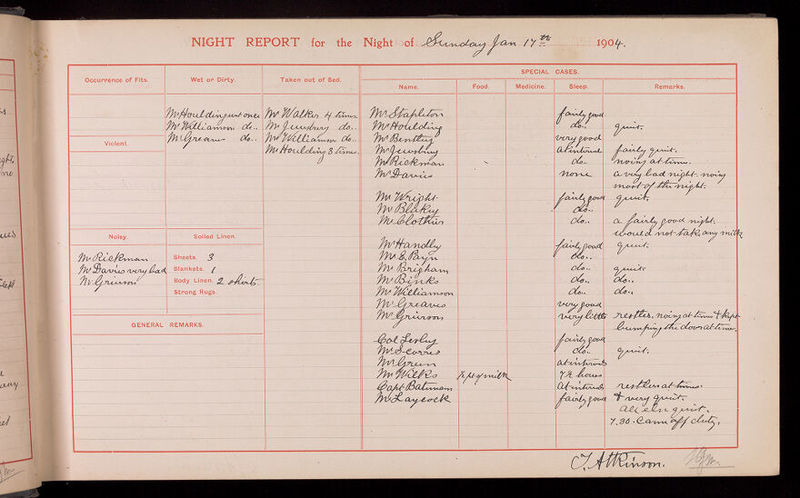 NIGHT REPORT for the Night of Sunday Jan 17th 1904.
Occurrence of Fits.
Wet or Dirty.
Taken out of Bed.
SPECIAL CASES.
Name.
Food.
Medicine.
Sleep.
Remarks.
Mr Houlding wet once
Mr Williamson do..
Mr Greaves do..
Mr Walker 4 times
do..
Mr Williamson do..
Mr Houlding 3 times.
Violent.
Noisy.
Mr Rickman
Mr Davies very bad
Mr Grierson
Soiled Linen.
Sheets. 3
Blankets. 1
Body Linen. 2 shirts.
Strong Rugs.
GENERAL REMARKS.
Mr Stapleton fairly good
Mr Houlding do.. quiet.
Mr Bentley very good
at intervals fairly quiet.
Mr Rickman do.. noisy at times.
Mr Davies none a very bad night. noisy
most of the night.
Mr Wright fairly good quiet.
Mr Blakey do..
do.. a fairly good night.
would not take any milk
Mr Handley fairly good quiet.
Mr E. Payn do..
Mr Brigham do.. quiet.
Mr Binks do.. do..
Mr Williamson do.. do..
Mr Greaves very good
Mr Grierson very little restless, noisy at times & kept
bumping the door at times.
Col fairly good
Mr do.. quiet.
Mr Green at intervals
Mr Wilks milk 7½ hours
Capt Bateman at intervals restless at times.
Mr Laycock fairly good & very quiet.
all else quiet.
7.30. Came off duty.
Atkinson.